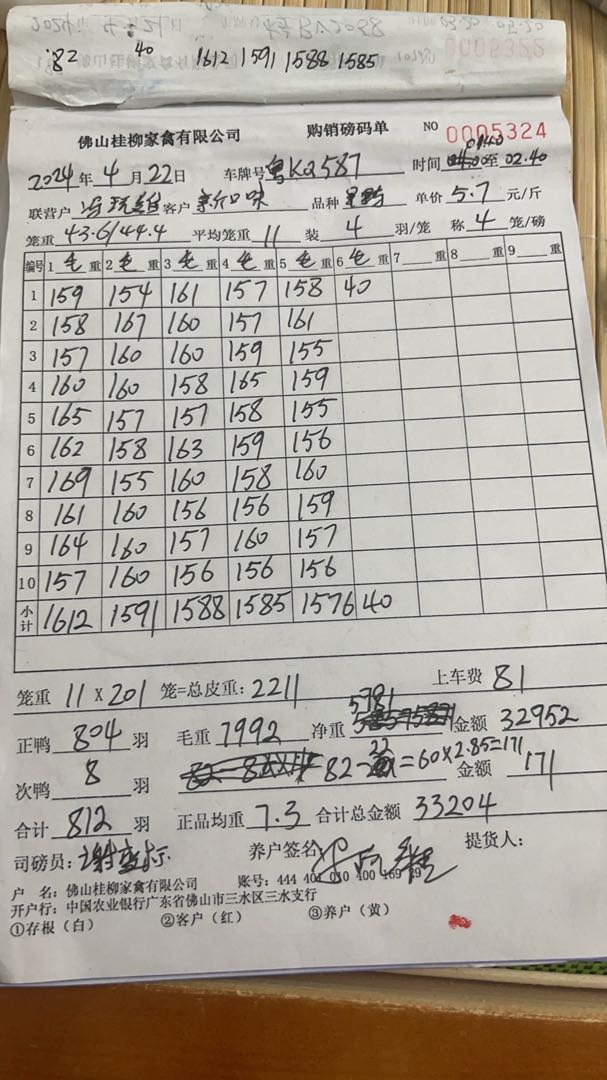 82 40 1612 1591 1588 1585
佛山桂柳家禽有限公司 购销磅码单 NO 0005324
2024年4月22日 车牌号 粤KQ2587 时间 0140至02.40
联营户 客户 品种 单价5.7元/斤
笼重43.6/44.4 平均笼重11 装4羽/笼 称4笼/磅
编号 1毛重 2毛重 3毛重 4毛重 5毛重 6毛重 7重 8重 9重
1 159 154 161 157 158 40
2 158 167 160 157 161
3 157 160 160 159 155
4 160 160 158 165 159
5 165 157 157 158 155
6 162 158 163 159 156
7 169 155 160 158 160
8 161 160 156 156 159
9 164 160 157 160 157
10 157 160 156 156 156
小计 1612 1591 1588 1585 1576 40
笼重11×201笼=总皮重:2211 上车费81
正鸭804羽 毛重7992 净重5781 金额32952
次鸭8羽 82-22=60×2.85=171 金额171
合计812羽 正品均重7.3 合计总金额33204
司磅员: 养户签名 提货人:
户 名:佛山桂柳家禽有限公司 账号:444 404 010 400 169 29
开户行:中国农业银行广东省佛山市三水区三水支行
①存根(白) ②客户(红) ③养户(黄)